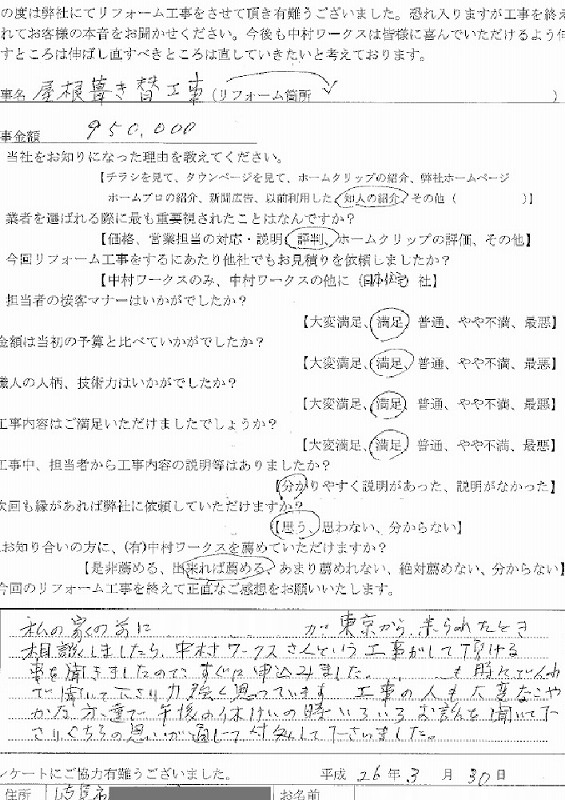 の度は弊社にてリフォーム工事をさせて頂き有難うございました。恐れ入りますが工事を終え
れてお客様の本音をお聞かせください。今後も中村ワークスは皆様に喜んでいただけるよう伸
すところは伸ばし直すべきところは直していきたいと考えております。
事名 屋根葺き替工事 (リフォーム箇所 )
事金額 950,000
当社をお知りになった理由を教えてください。
【チラシを見て、タウンページを見て、ホームクリップの紹介、弊社ホームページ
ホームプロの紹介、新聞広告、以前利用した、知人の紹介、その他 ( )】
業者を選ばれる際に最も重要視されたことはなんですか？
【価格、営業担当の対応・説明、評判、ホームクリップの評価、その他】
今回リフォーム工事をするにあたり他社でもお見積りを依頼しましたか？
【中村ワークスのみ、中村ワークスの他に ( ) 社】
担当者の接客マナーはいかがでしたか？
【大変満足、満足、普通、やや不満、最悪】
金額は当初の予算と比べていかがでしたか？
【大変満足、満足、普通、やや不満、最悪】
職人の人柄、技術力はいかがでしたか？
【大変満足、満足、普通、やや不満、最悪】
工事内容はご満足いただけましたでしょうか？
【大変満足、満足、普通、やや不満、最悪】
工事中、担当者から工事内容の説明等はありましたか？
【分かりやすく説明があった、説明がなかった】
次回も縁があれば弊社に依頼していただけますか？
【思う、思わない、分からない】
お知り合いの方に、(有)中村ワークスを薦めていただけますか？
【是非薦める、出来れば薦める、あまり薦めれない、絶対薦めない、分からない】
今回のリフォーム工事を終えて正直なご感想をお願いいたします。
私の家の前に が東京から来られたとき
相談しましたら、中村ワークスさんという工事がして頂ける
事を聞きましたので、すぐに申込みました。 も
で聞いて下さり力強く思っています 工事の人も大変なごや
かな方達で午後の休けいの時いろいろお話を聞いて下
さりこちらの思いが通じて 下さいました。
ンケートにご協力有難うございました。 平成 26年 3 月 30日
住所 お名前